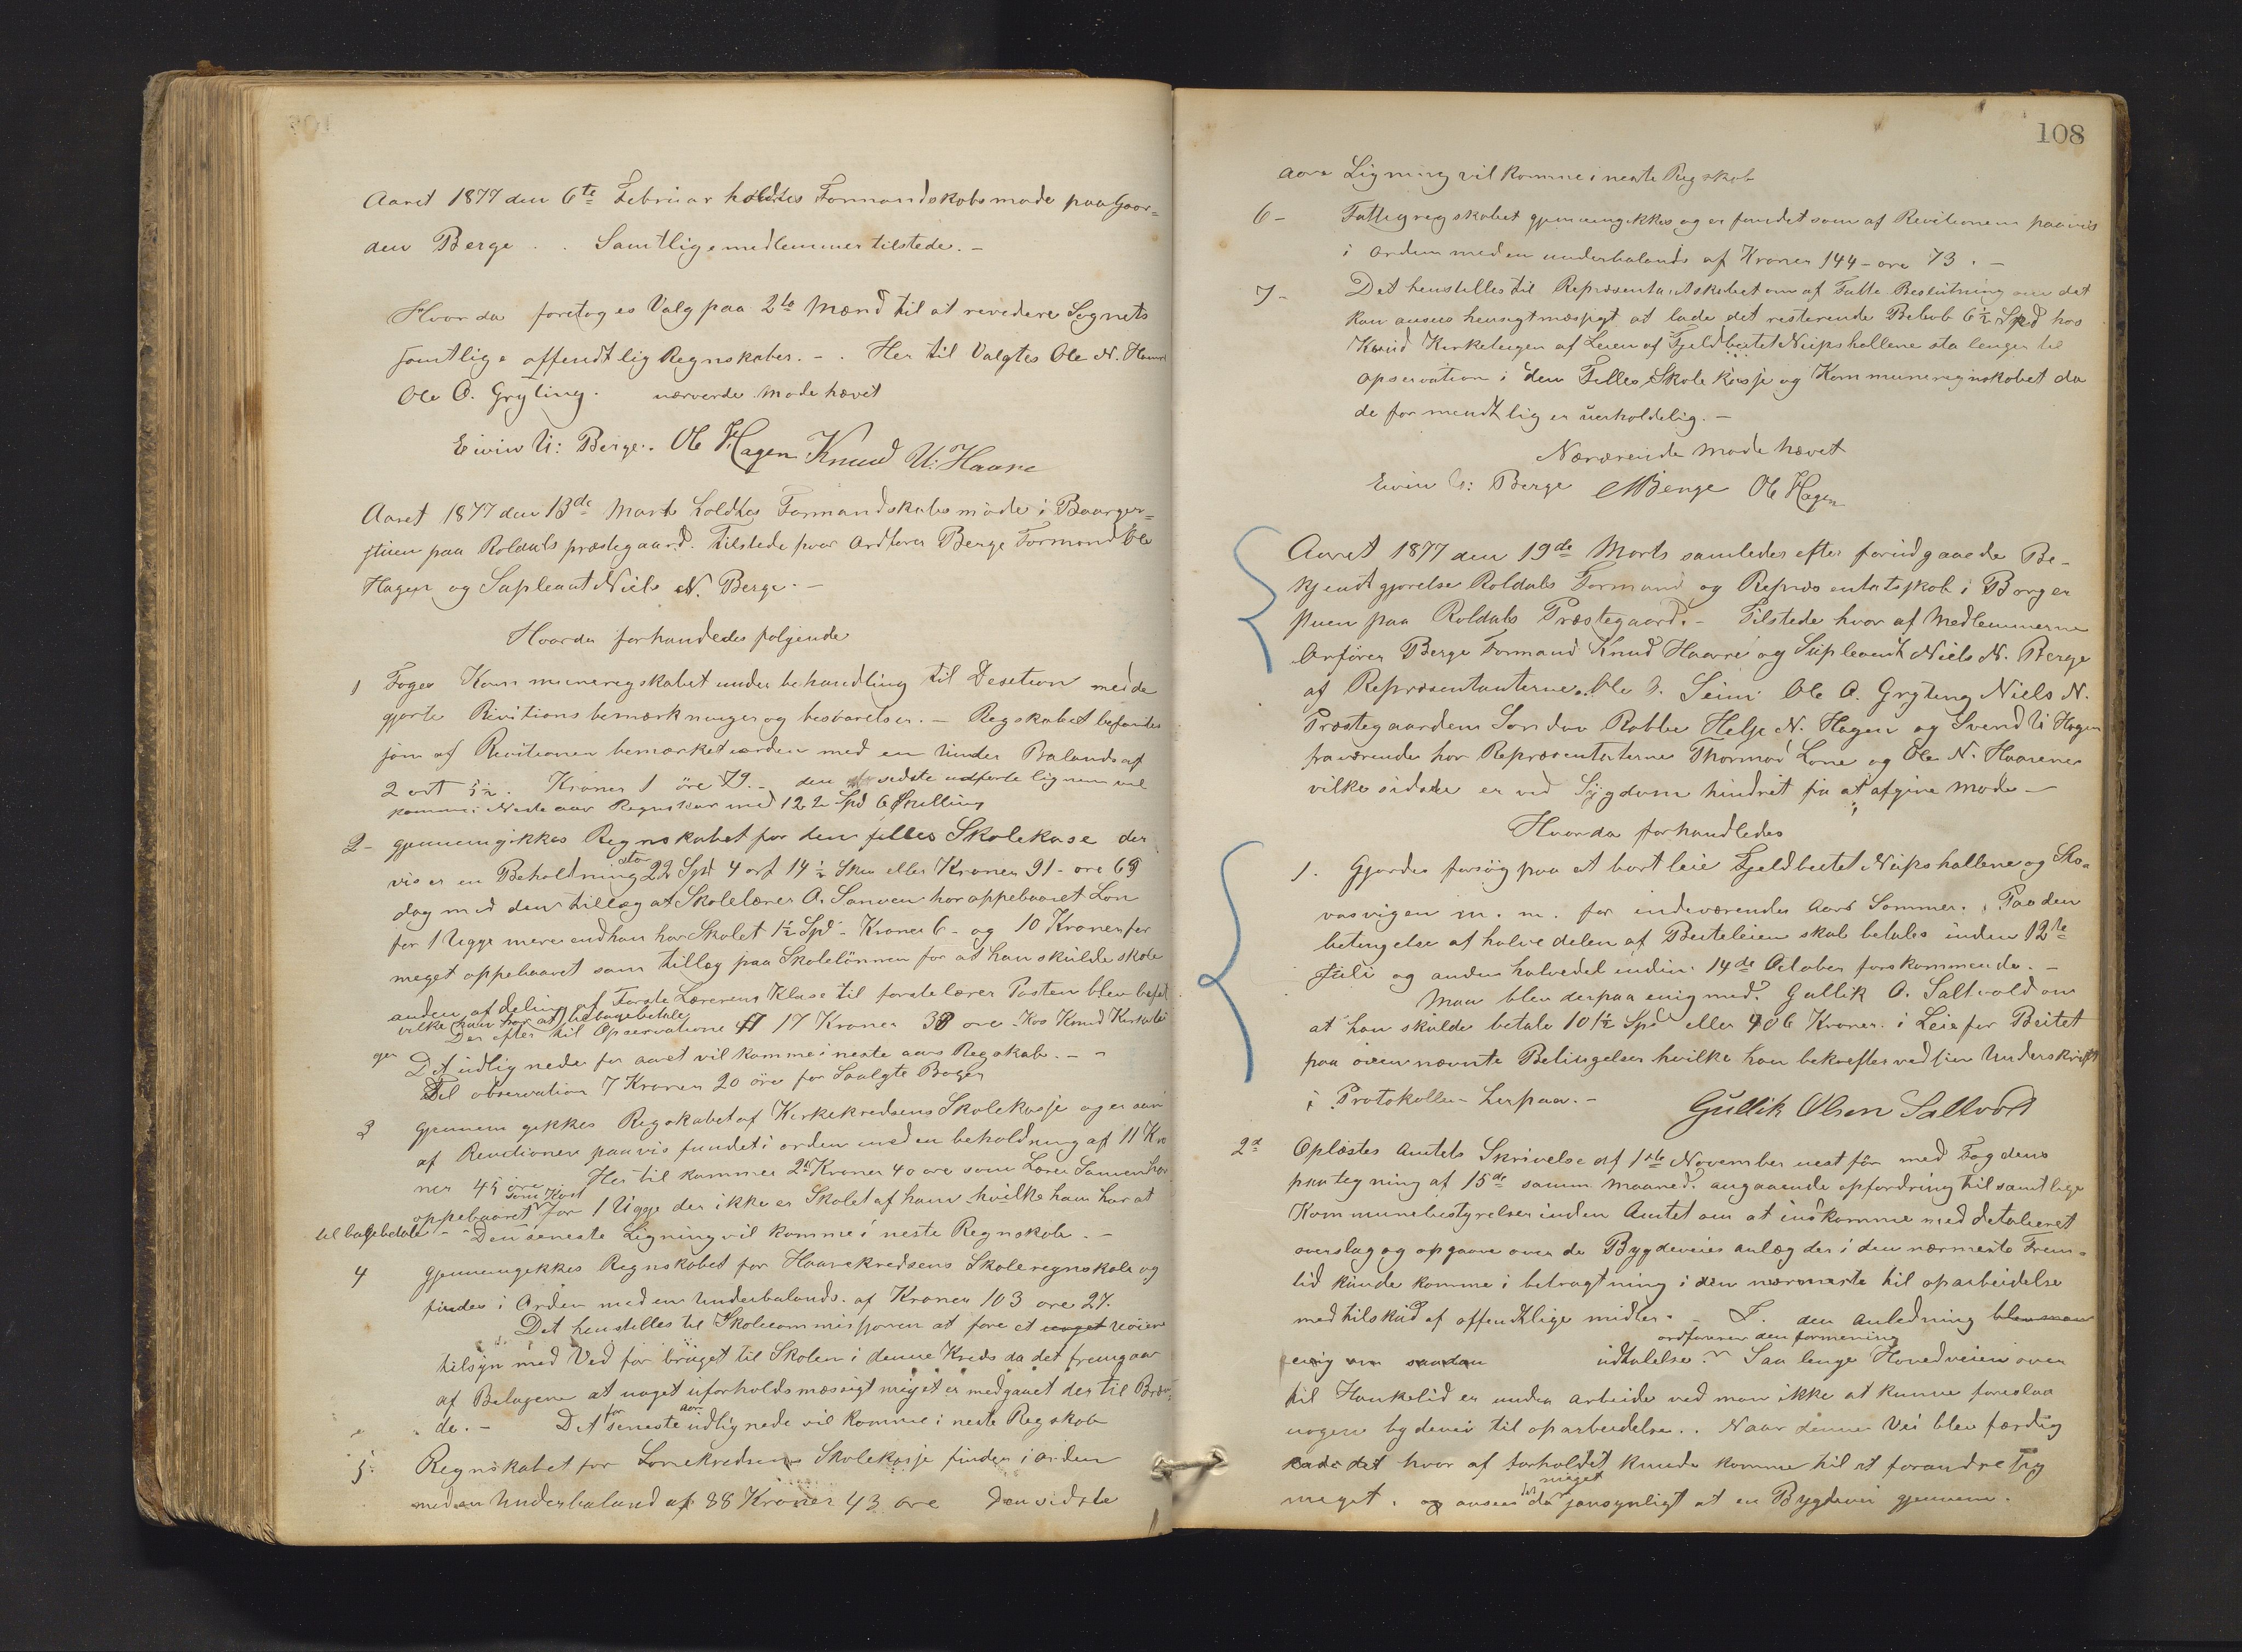 Aaret 1877 den 6te Februar holdtes Formandskabsmøde paa Gaar=
den Berge . . Samtlige medlemmer tilstede. -
Hvor da foretoges Valg paa 2to Mænd til at revedere Sognets
samtlige offendtlig Regnskaber. - . Her til Valgtes Ole N. Haare
Ole O. Gryting. nærverde møde hævet
Eivin U: Berge. Ole Hagen Knud U: Haare
Aaret 1877 den 13de Marts holdtes Formandskabs møde i Baarger=
stuen paa Roldals præstegaard. Tilstede hvar Ordfører Berge Formand Ole
Hagen og Supleant Niels N. Berge. -
Hvorda forhandledes følgende
1 Toges Kommuneregskabet under behandling til Desetion med de
gjorte Rivitions bemærkninger og besvarelser. - Regskabet befandtes
som af Revitionen bemærket i orden med en Under Balands af
2 ort 5½. Kroner 1 øre 79. - den sidste udførte lignin vil
komme i Neste aar Regnskab med 122 Spd 6 Skilling
2- gjennemgikkes Regnskabet for den felles Skolekase der
vis er en Beholdning stor 22 Spd 4 ort 14½ Sk. eller Kroner 91 - øre 69
dog med den tillæg at Skolelærer O. Sanven har oppebaaret Løn
for 1 Ugge mere end han har Skolet 1½ Spd - Kroner 6 - og 10 Kroner for
meget oppebaaret som tillæg paa Skolelønnen for at han skulde skole
anden afdeling af Første Lærerens Klase til førstelærer Posten blev besat
vilke han har at tilbagebetale
Der efter til Opservatione 17 Kroner 38 øre - Hos Knud Kirkelei
ger
Det udlignede for aaret vil komme i neste aars Regskab. - -
Til observation 7 Kroner 20 øre for Saalgte Bøger
3 gjennem gikkes Regskabet af Kirkekredsens Skolekasje og er som
af Revitionen paavis fundet i orden med en beholdning af 11 Kro
ner 45 øre. Her til kommer 2 Kroner 40 øre som Lærer Sanven har
oppebaaret som Kost for 1 Ugge der ikke er Skolet af ham hvilke han har at
til bagebetale - - Den seneste Ligning vil komme i neste Regnskab. -
4 gjennemgikkes Regnskabet for Haarekredsens Skoleregnskab og
findes i Orden med en Underbalands. af Kroner 103 øre 27.
Det henstilles til Skolecommisjonen at føre et noget nøiere
tilsyn med Ved for bruget til Skolen i denne Kreds da det fremgaar
af Belagene at noget uforholdsmæssigt meget er medgaaet der til Bræn=
de. - Det for seneste aar udlignede vil komme i neste Regskab
5: Regnskabet for Lonekredsens Skolekasje findes i orden
med en Underbaland af 88 Kroner 43 øre Den sidste
108
aars Ligning vil komme i neste Regskab
6- Fattigregskabet gjennemgikkes og er fundet som af Revitionen paavis
i orden med en underbalands af Kroner 144 - øre 73. -
7- Det henstilles til Repræsentantskabet om at Fatte Beslutning om det
kan ansees hensigtmæsigt at lade det resterende Beløb 6½ Spd hos
Knud Kirkeleigen af Leien af Fjeldbeitet Nupshallene sta lenger til
opservation i den Felles Skole kasje og Kommuneregnskabet da
de formendtlig er uerholdelig. -
Nærærende møde hævet
Eivin U: Berge NNBerge Ole Hagen
Aaret 1877 den 19de Marts samledes efter forudgaaede Be-
kjendtgjørelse Roldals Formand og Repræsentatskab i Borger
stuen paa Roldals Præstegaard. - Tilstede hvor af Medlemmerne
Orfører Berge Formand Knud Haare og Supleant Niels N. Berge
af Repræsentanterne. Ole S. Seim Ole O. Gryting Niels N.
Præstegaarden Søndar Rabbe Helje N. Hagen og Svend U Hagen
fraværende har Repræsentaterne Thormod Lone og Ole N. Haarene
vilke sidste er ved Sygdom hindret fra at afgive Møde -
Hvorda forhandledes
1. Gjordes forsøg paa at bortleie Fjeldbeitet Nupshallene og Sto-
vasvigen m. m. for indeværendes Aars Sommer. Paa den
betingelse af halve delen af Beiteleien skal betales inden 12te
Juli og anden halvedel inden 14de October førskommende. -
Man blev derpaa enig med. Gullik O. Saltvold om
at han skulde betale 101½ Spd eller 406 Kroner. i Leie for Beitet
paa ovennævnte Betingelser hvilke han bekræftes ved sin Underskrift
i Protokollen herpaa. -
Gullik Olsen Saltvold
2d Oplæstes Amtets Skrivelse af 1ste November nest før med Fogdens
paategning af 15de samm. Maaned. angaaende opfordring til samtlige
Kommunebestyrelser inden Amtet om at indkomme med detalieret
overslag og opgaver over de Bygdeveies anlæg der i den nærmeste Frem=
tid kunde komme i betragtning i den nærmeste til oparbeidelse
med tilskud af offendtlige midler. - I. den anledning blev man
enig om saadan udtalelse. ordføreren den formening Saa lenge Hovedveien over
til Haukelid er under arbeide ved man ikke at kunne foreslaa
nogen bygdevei til oparbeidelse. . Naar denne Vei blev færdig
hvor af forholdet kunde komme til at forandre sig
meget. og ansees da for meget sansynligt at en Bygdevei gjennem.